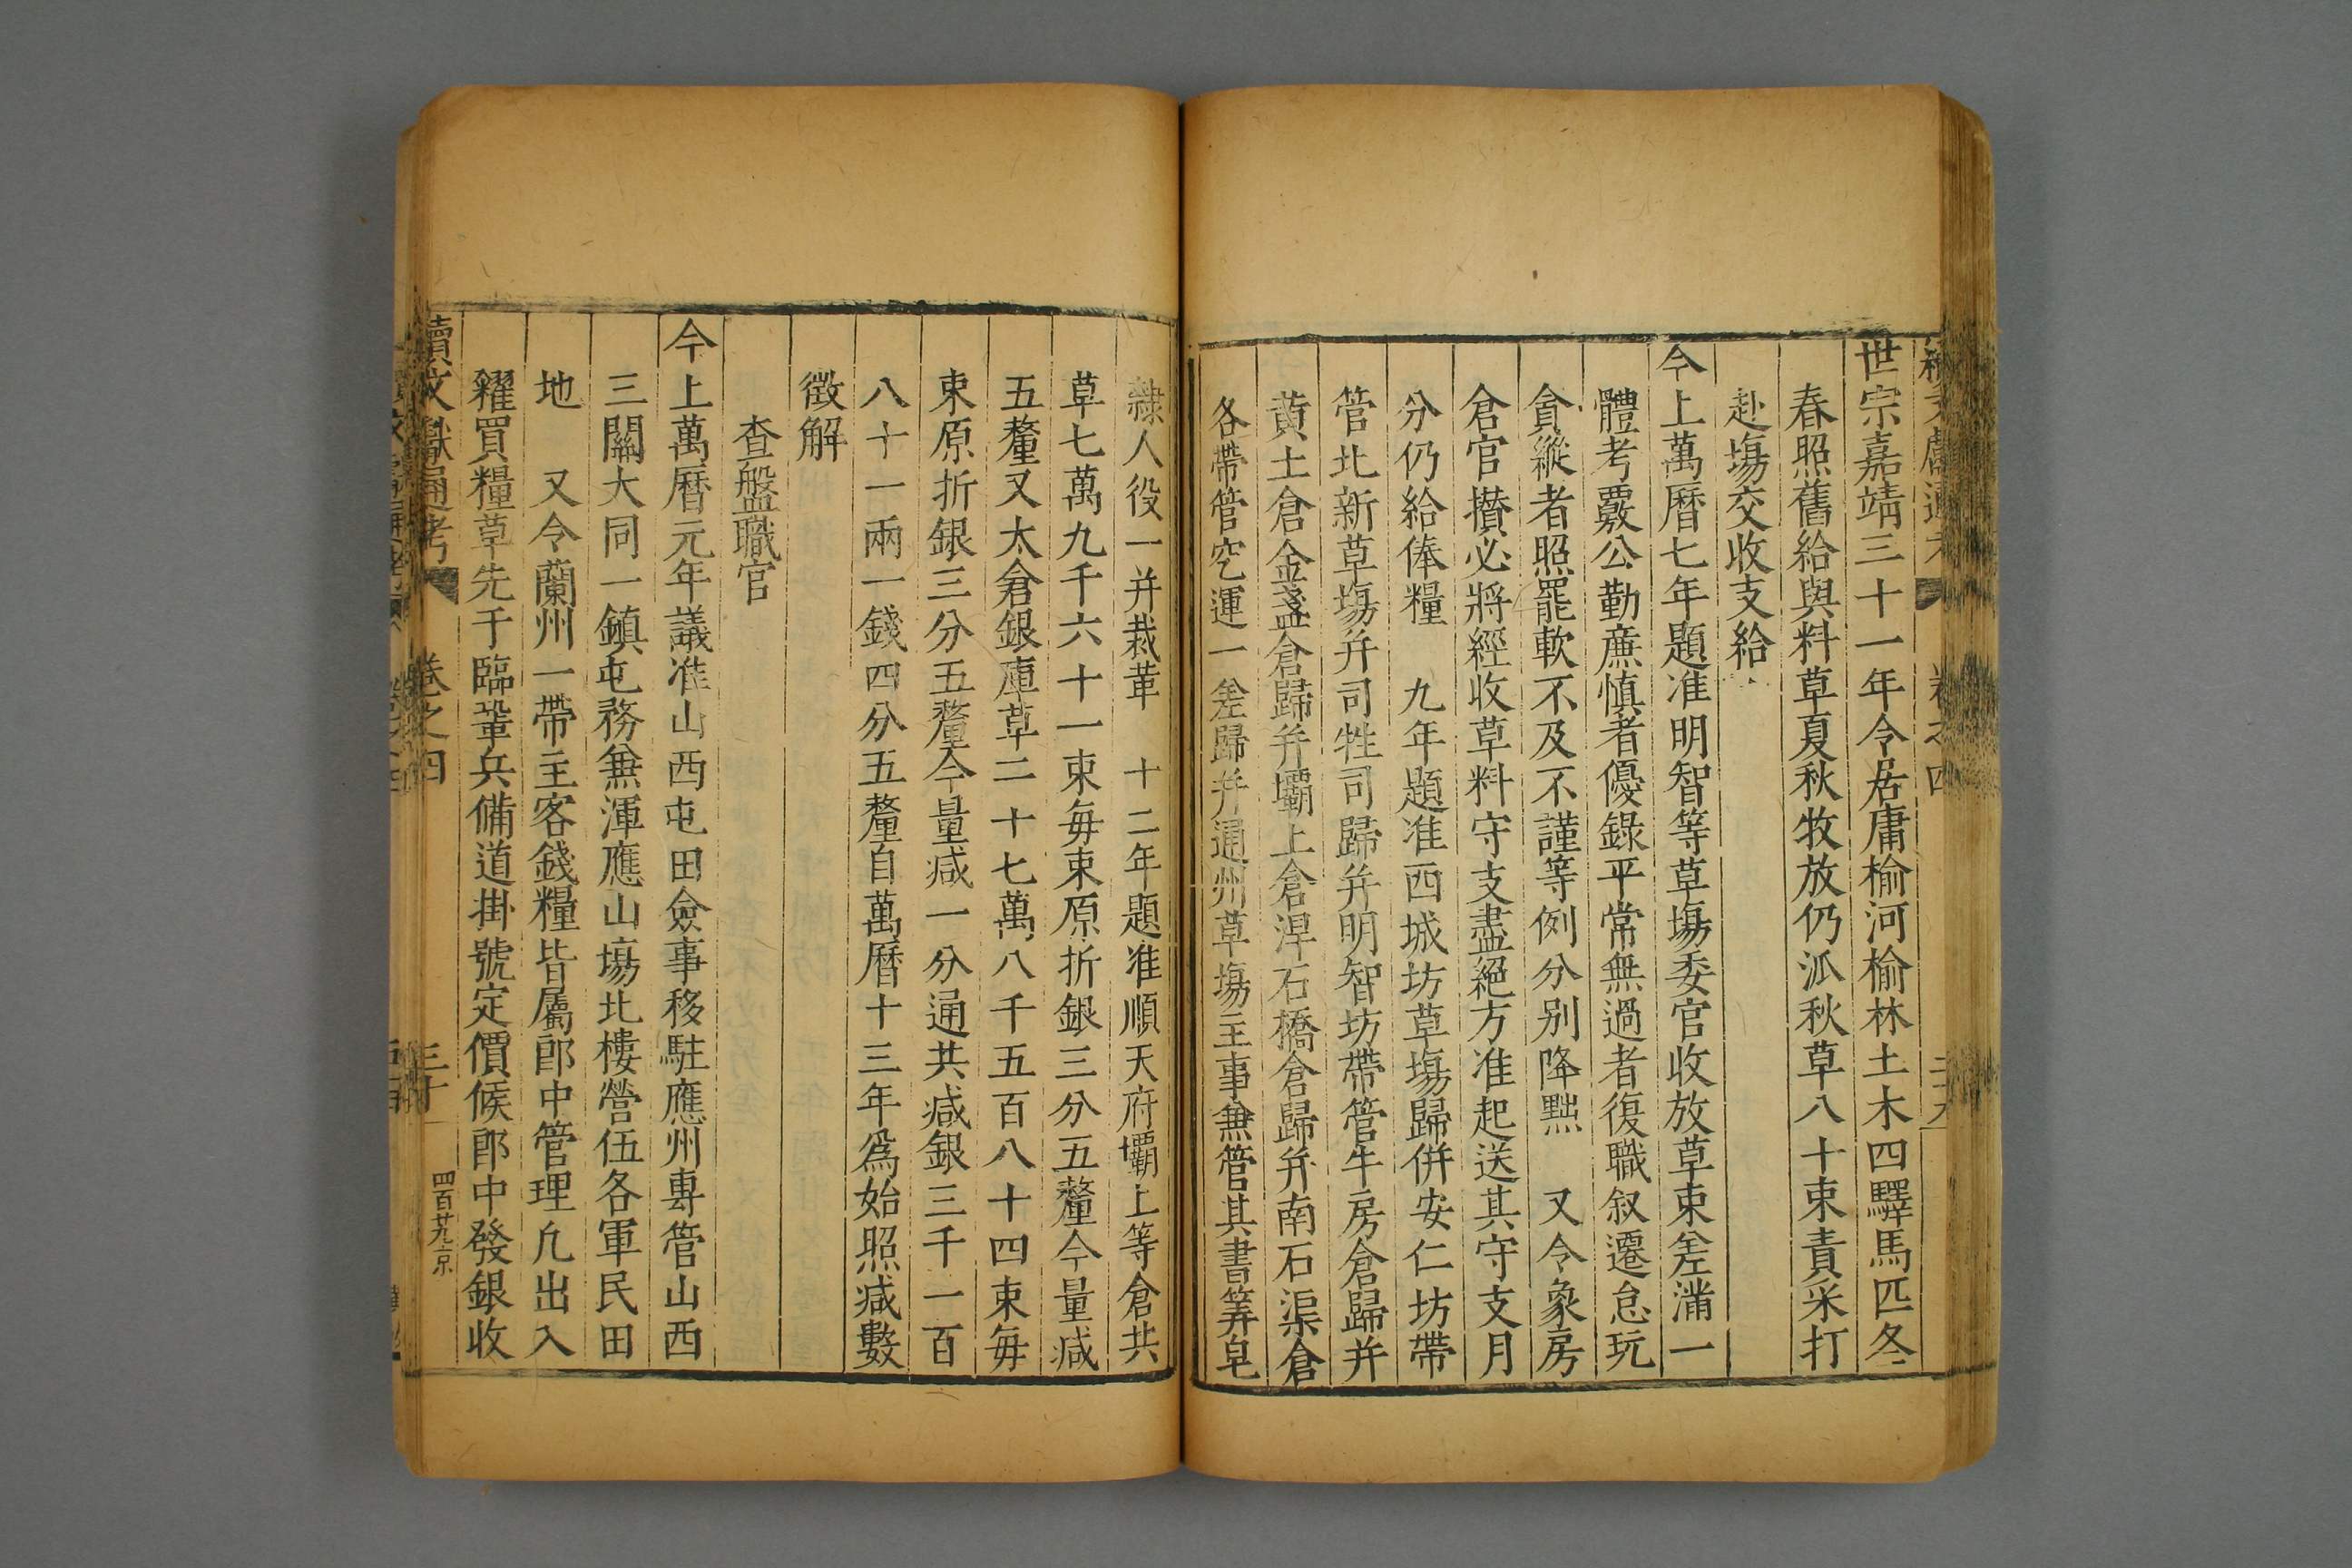 世宗嘉靖三十一年令居庸榆河榆林土木四驛馬匹冬
春照舊給與料草夏秋牧放仍派秋草八十束責采打
赴塲交收支給
今上萬曆七年題准明智等草塲委官收放草束差滿一
體考覈公勤廉慎者優錄平常無過者復職叙遷怠玩
貪縱者照罷軟不及不謹等例分别降黜　又令象房
倉官攅必將經收草料守支盡絕方准起送其守支月
分仍給俸糧　九年題准西城坊草塲歸併安仁坊帶
管北新草塲并司牲司歸并明智坊帶管牛房倉歸并
黄土倉金盞倉歸并壩上倉渾石橋倉歸并南石渠倉
各帶管空運一差歸并通州草塲主事兼管其書筭皂
隸人役一并裁革　十二年題准順天府壩上等倉共
草七萬九千六十一束毎束原折銀三分五釐今量减
五釐又太倉銀庫草二十七萬八千五百八十四束毎
束原折銀三分五釐今量减一分通共减銀三千一百
八十一兩一錢四分五釐自萬曆十三年爲始照减數
徵解
查盤職官
今上萬曆元年議准山西屯田僉事移駐應州專管山西
三關大同一鎮屯務無渾應山塲北樓營伍各軍民田
地　又令蘭州一帶主客錢糧皆屬郎中管理凡出入
糴買糧草先于臨鞏兵備道掛號定價候郎中發銀收
續文獻通考　卷之四　三十　四百廿九京